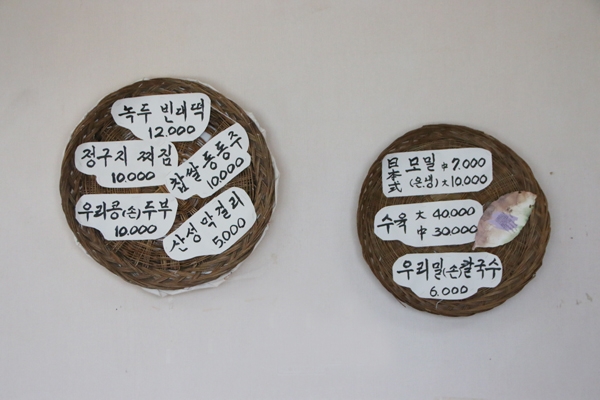 녹두 빈대떡
12.000
정구지 찌짐
10.000
찹쌀 동동주
10.000
우리콩(손)두부
10.000
산성 막걸리
5.000
日本式 모밀 中 7.000
(온생) 大 10.000
수육 大 40.000
中 30.000
우리밀(손)칼국수
6.000